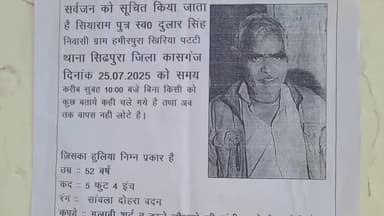 सर्वजन को सूचित किया जाता
है सियाराम पुत्र स्व0 दुलार सिंह
निवासी ग्राम हमीरपुरा खिरिया पटटी
थाना सिढपुरा जिला कासगंज
दिनांक 25.07.2025 को समय
करीब सुबह 10:00 बजे बिना किसी को
कुछ बताये कही चले गये है तथा अब
तक वापस नही लोटे है।
जिसका हुलिया निम्न प्रकार है
उम्र :- 52 बर्ष
कद :- 5 फुट 4 इंच
रंग :- सांवला दोहरा बदन
कपडे